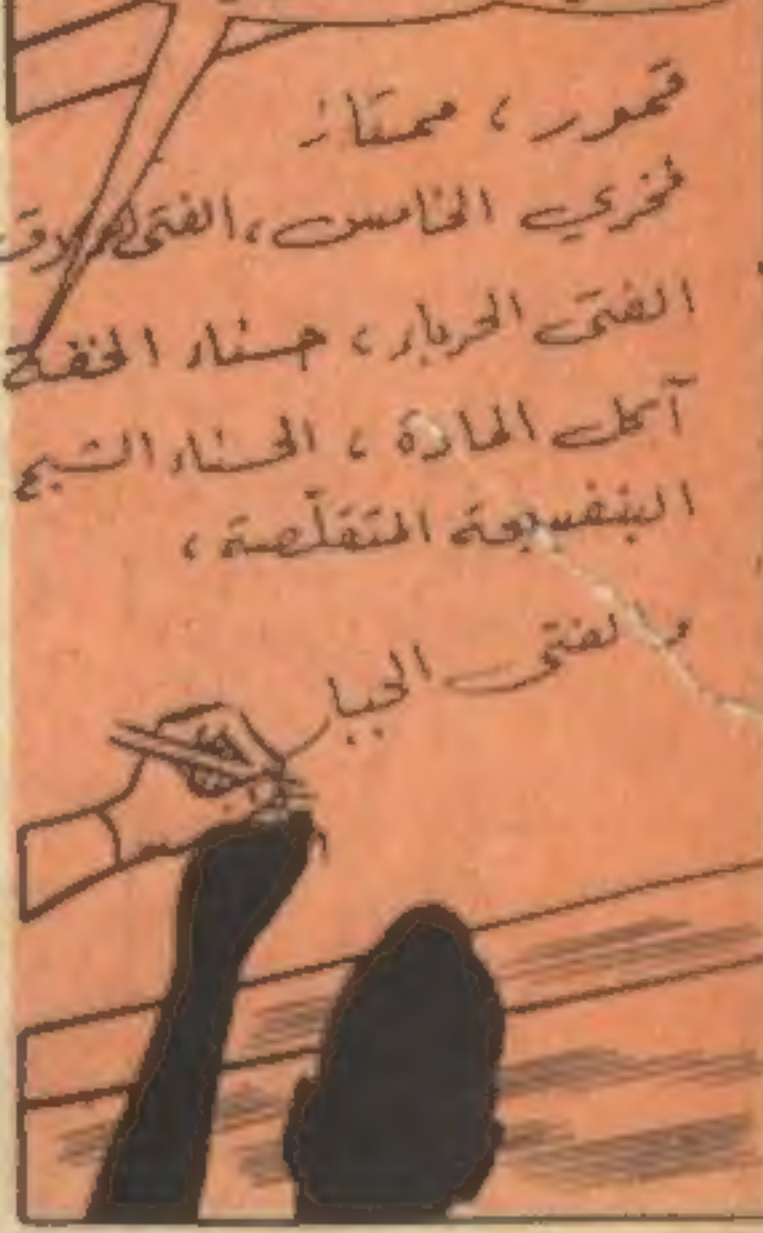 قمور ،
فخري الخامس ، الفتى
الفتى الحربار ، حسناء الخفة
آكل المادة ، الحسناء الشبح
البنفسجة المتقلّصة ،
والفتى الجبا